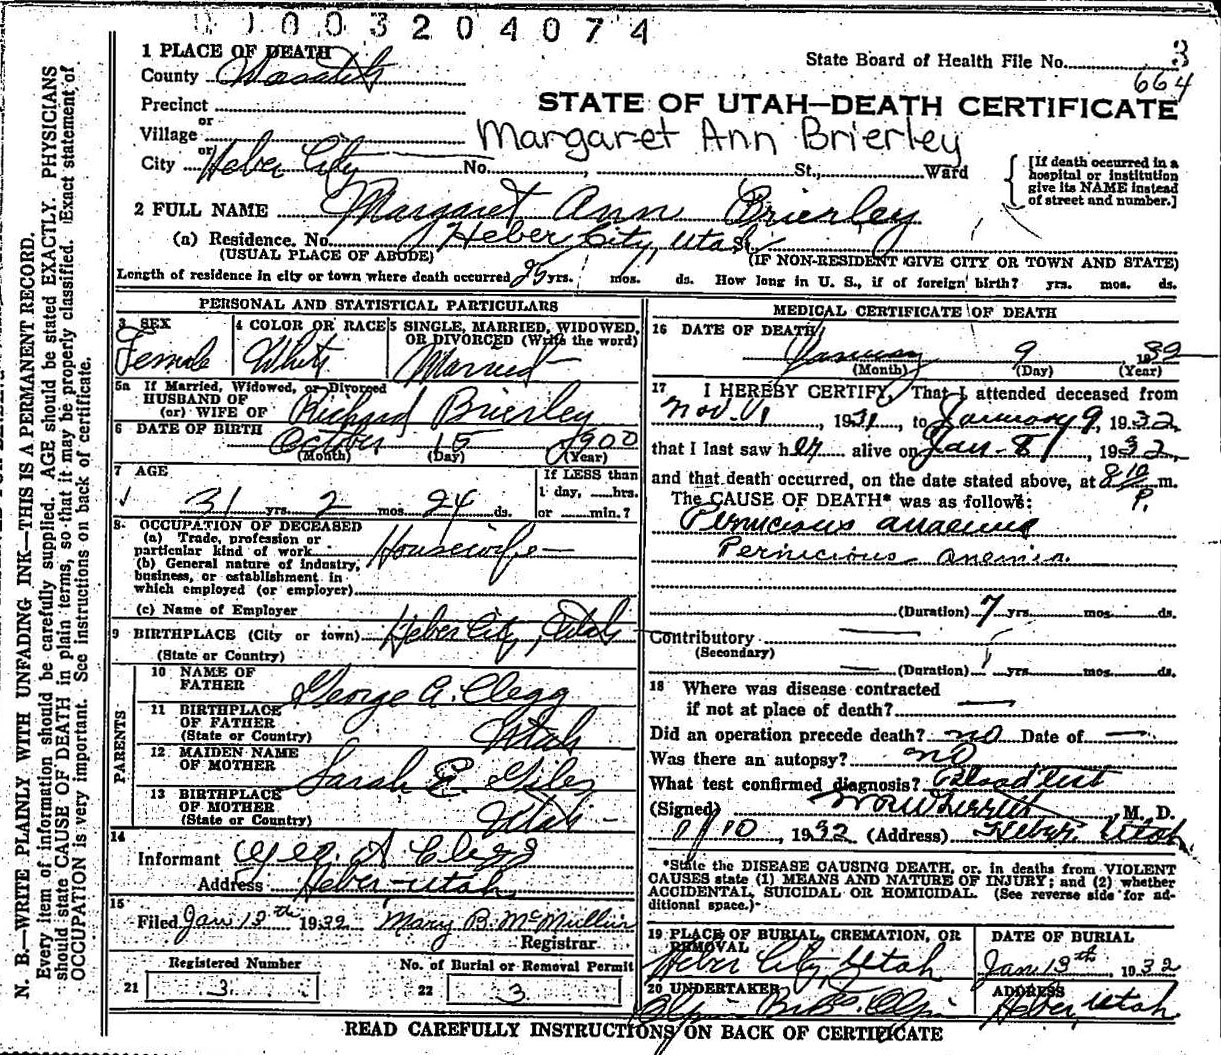 0 1 0 0 3 2 0 4 0 7 4
1 PLACE OF DEATH
State Board of Health File No. 3
County Wasatch
664
Precinct
STATE OF UTAH—DEATH CERTIFICATE
or
Village
Margaret Ann Brierley
or
City Heber City No. , St., Ward
[If death occurred in a hospital or institution give its NAME instead of street and number.]
2 FULL NAME Margaret Ann Brierley
(a) Residence. No. Heber City, Utah St.,
(USUAL PLACE OF ABODE) (IF NON-RESIDENT GIVE CITY OR TOWN AND STATE)
Length of residence in city or town where death occurred 25 yrs. mos. ds. How long in U. S., if of foreign birth? yrs. mos. ds.
PERSONAL AND STATISTICAL PARTICULARS
3 SEX
Female
4 COLOR OR RACE
White
5 SINGLE, MARRIED, WIDOWED, OR DIVORCED (Write the word)
Married
5a If Married, Widowed, or Divorced
HUSBAND OF
(or) WIFE OF Richard Brierley
6 DATE OF BIRTH October 15 1900
(Month) (Day) (Year)
7 AGE
31 yrs. 2 mos. 24 ds.
If LESS than
1 day, hrs.
or min.?
8 OCCUPATION OF DECEASED
(a) Trade, profession or
particular kind of work Housewife
(b) General nature of industry,
business, or establishment in
which employed (or employer)
(c) Name of Employer
9 BIRTHPLACE (City or town) Heber City, Utah
(State or Country)
PARENTS
10 NAME OF
FATHER George A. Clegg
11 BIRTHPLACE
OF FATHER
(State or Country) Utah
12 MAIDEN NAME
OF MOTHER Sarah E. Giles
13 BIRTHPLACE
OF MOTHER
(State or Country) Utah
14
Informant Geo. A Clegg
Address Heber-Utah
15
Filed Jan 13th 1932 Mary B. McMullin
Registrar
Registered Number
21 3
No. of Burial or Removal Permit
22 3
MEDICAL CERTIFICATE OF DEATH
16 DATE OF DEATH
January 9 1932
(Month) (Day) (Year)
17 I HEREBY CERTIFY, That I attended deceased from
Nov. 1, 1931, to January 9, 1932,
that I last saw her alive on Jan. 8, 1932,
and that death occurred, on the date stated above, at 8 10 P. m.
The CAUSE OF DEATH* was as follows:
Pernicious anaemia
Pernicious anemia.
(Duration) 7 yrs. mos. ds.
Contributory
(Secondary)
(Duration) yrs. mos. ds.
18 Where was disease contracted
if not at place of death?
Did an operation precede death? no Date of
Was there an autopsy? no
What test confirmed diagnosis? Blood test
(Signed) M. D.
1/10, 1932 (Address) Heber, Utah
*State the DISEASE CAUSING DEATH, or, in deaths from VIOLENT
CAUSES state (1) MEANS AND NATURE OF INJURY; and (2) whether
ACCIDENTAL, SUICIDAL OR HOMICIDAL. (See reverse side for ad-
ditional space.)
19 PLACE OF BURIAL, CREMATION, OR
REMOVAL
Heber City, Utah
DATE OF BURIAL
Jan 13th, 1932
20 UNDERTAKER
ADDRESS
Heber, Utah
READ CAREFULLY INSTRUCTIONS ON BACK OF CERTIFICATE
N. B.—WRITE PLAINLY WITH UNFADING INK—THIS IS A PERMANENT RECORD.
Every item of information should be carefully supplied. AGE should be stated EXACTLY. PHYSICIANS
should state CAUSE OF DEATH in plain terms, so that it may be properly classified. Exact statement of
OCCUPATION is very important. See instructions on back of certificate.